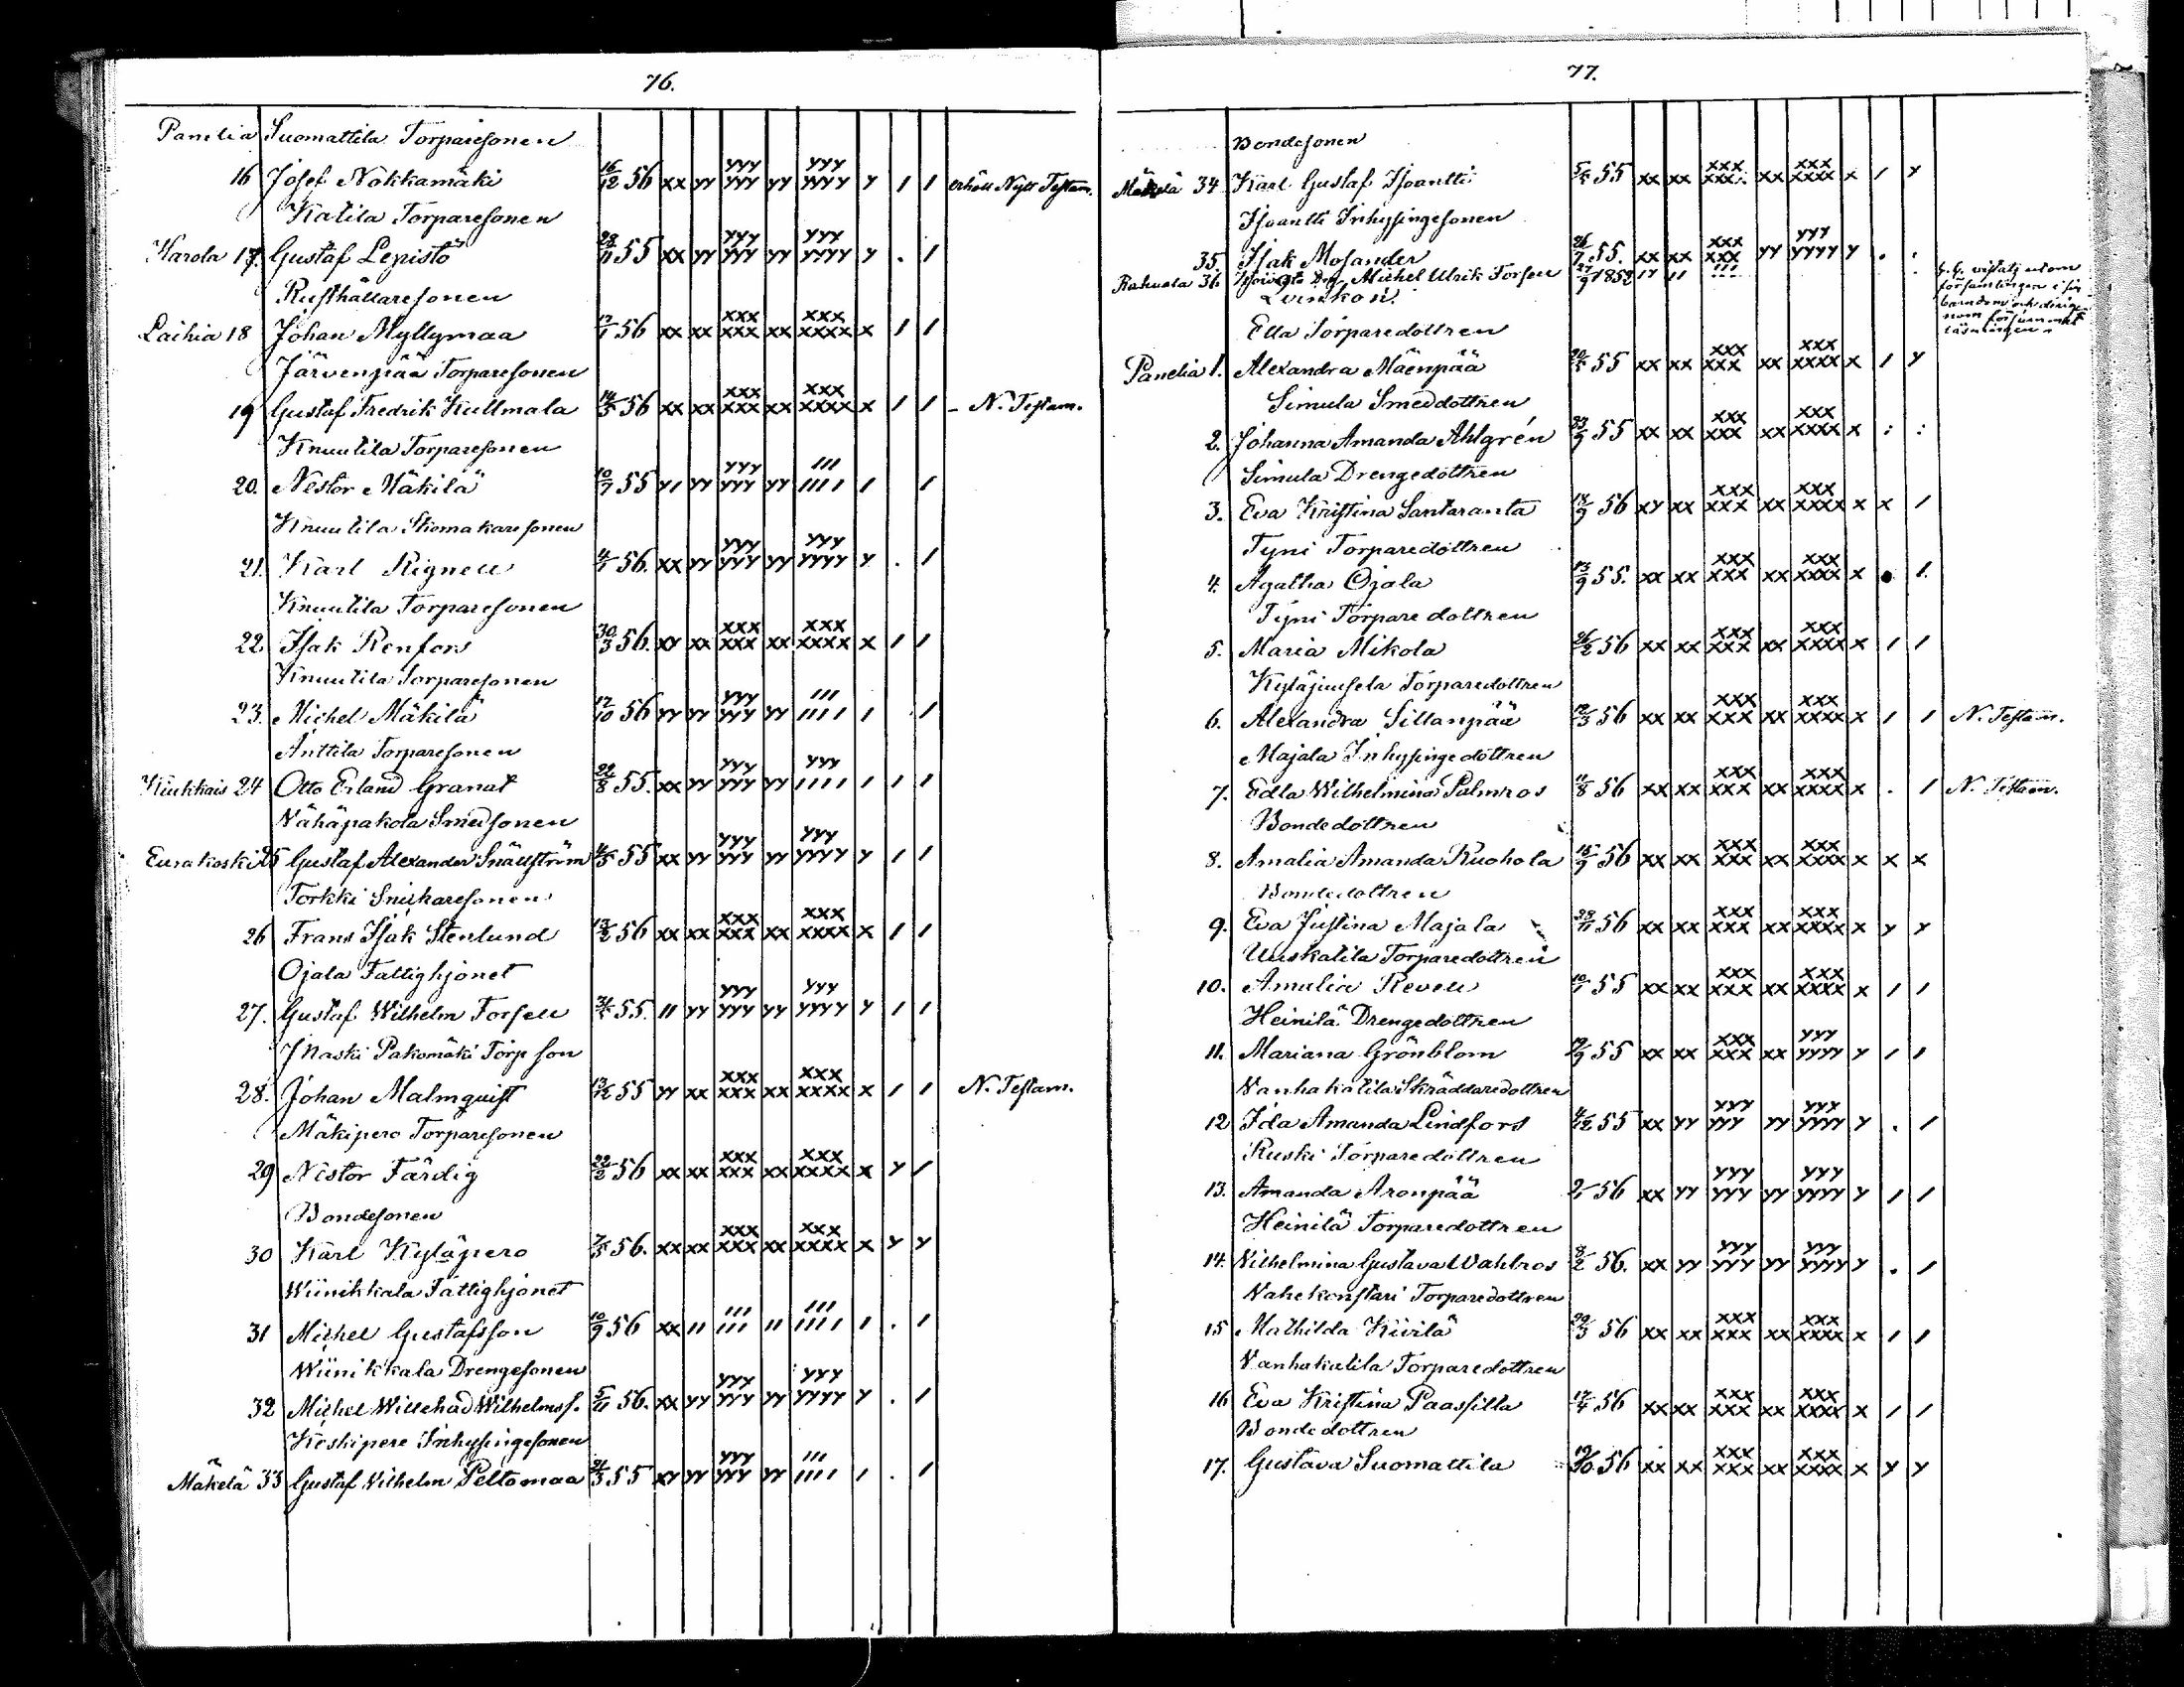 76.
Panelia Suomattila Torparesonen
16 Josef Nokkamäki 16/12 56 xx yy yyy yyy yy yyy yyyy y / / erhöll Nytt Testam.
Katila Torparesonen
Karola 17. Gustaf Lepistö 55 xx yy yyy yyy yy yyy yyyy y . /
Rusthållaresonen
Laihia 18 Johan Myllymaa 56 xx xx xxx xxx xx xxx xxxx x / /
Järvenpää Torparesonen
19 Gustaf Fredrik Kullmala 14/5 56 xx xx xxx xxx xx xxx xxxx x / / – N. Testam.
Knuutila Torparesonen
20. Nestor Mäkilä 10/7 55 y/ yy yyy yyy yy /// //// / /
Knuutila Skomakaresonen
21. Karl Rignell 56. xx yy yyy yyy yy yyy yyyy y . /
Knuutila Torparesonen
22. Isak Renfors 30/3 56. xy xx xxx xxx xx xxx xxxx x / /
Knuutila Torparesonen
23. Michel Mäkilä 17/10 56 yy yy yyy yyy yy /// //// / /
Anttila Torparesonen
Kiukkais 24 Otto Erland Granat 55. xx yy yyy yyy yy yyy //// / / /
Nähäpakola Smedsonen
Eurakoski 25 Gustaf Alexander Snällström 55 xx yy yyy yyy yy yyy yyyy y / /
Torkki Snickaresonen
26 Frans Isak Stenlund 56 xx xx xxx xxx xx xxx xxxx x / /
Ojala Fattighjonet
27. Gustaf Wilhelm Forsell 55. // yy yyy yyy yy yyy yyyy y / /
Pakomäki Torp son
28. Johan Malmquist 55 yy xx xxx xxx xx xxx xxxx x / / N. Testam.
Mäkipere Torparesonen
29 Nestor Färdig 22/2 56 xx xx xxx xxx xx xxx xxxx x y /
Bondesonen
30 Karl Kyläpero 56. xx xx xxx xxx xx xxx xxxx x y y
Wiinikkala Fattighjonet
31 Michel Gustafsson 10/9 56 xx // /// /// // /// //// / . /
Wiinikkala Drengesonen
32 Michel Willehad Wilhelmss. 5/11 56. xx yy yyy yyy yy yyy yyyy y . /
Keskipere Inhysingesonen
Mäkelä 33 Gustaf Vilhelm Peltomaa 55 xy yy yyy yyy yy /// //// / . /
77.
Bondesonen
Mäkelä 34 Karl Gustaf Isoantti 55 xx xx xxx xxx xx xxx xxxx x / y
Isoantti Inhysingesonen
35. Isak Mosander 26/7 55. xx xx xxx xxx yy yyy yyyy y . .
36. Michel Ulrik Forsell 27/9 1852 // ///
församlingen i sin
barndom och
läsningen.
Ella Torparedottren
Panelia 1. Alexandra Mäenpää 55 xx xx xxx xxx xx xxx xxxx x / y
Simula Smeddottren
2. Johanna Amanda Ahlgrén 23/9 55 xx xx xxx xxx xx xxx xxxx x : :
Simula Drengedottren
3. Eva Kristina Santaranta 18/9 56 xy xx xxx xxx xx xxx xxxx x x /
Tyni Torparedottren
4. Agatha Ojala 13/9 55. xx xx xxx xxx xx xxx xxxx x . /.
Tyni Torparedottren
5. Maria Mikola 26/2 56 xx xx xxx xxx xx xxx xxxx x / /
Kyläjuusela Torparedottren
6. Alexandra Sillanpää 12/3 56 xx xx xxx xxx xx xxx xxxx x / / N. Testam.
Majala Inhysingedottren
7. Edla Wilhelmina Palmros 11/8 56 xx xx xxx xxx xx xxx xxxx x . / N. Testam.
Bondedottren
8. Amalia Amanda Ruohola 15/9 56 xx xx xxx xxx xx xxx xxxx x x x
Bondedottren
9. Eva Justina Majala 28/11 56 xx xx xxx xxx xx xxx xxxx x y y
Uuskatila Torparedottren
10. Amalia Revell 55 xx xx xxx xxx xx xxx xxxx x / /
Heinilä Drengedottren
11. Mariana Grönblom 55 xx xx xxx xxx xx yyy yyyy y / /
Vanhakatila Skräddaredottren
12 Ida Amanda Lindfors 4/12 55 xx yy yyy yyy yy yyy yyyy y . /
Ruski Torparedottren
13. Amanda Aronpää 56 xx yy yyy yyy yy yyy yyyy y / /
Heinilä Torparedottren
14. Vilhelmina Gustava Wahlros 8/2 56. xx yy yyy yyy yy yyy yyyy y . /
Vahekonstari Torparedottren
15 Mathilda Kivilä 29/3 56 xx xx xxx xxx xx xxx xxxx x / /
Vanhakatila Torparedottren
16 Eva Kristina Paassilta 56 xx xx xxx xxx xx xxx xxxx x / /
Bondedottren
17. Gustava Suomattila 19/10 56 xx xx xxx xxx xx xxx xxxx x y y